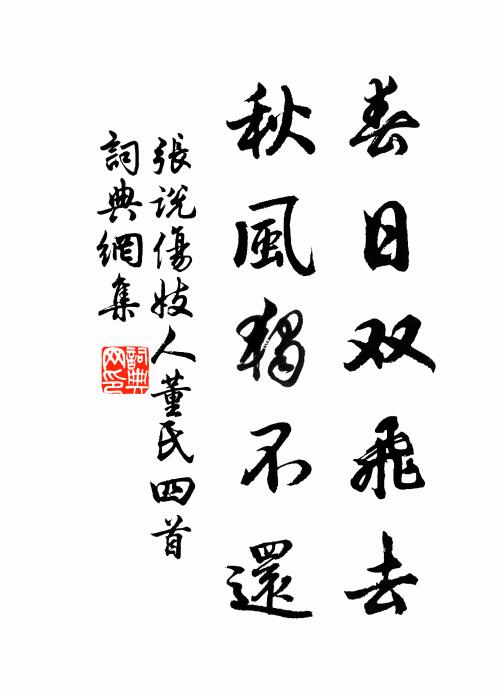 春日双飛去
秋風獨不還
張説傷妓人董氏四首
詞典網集
詞典网印